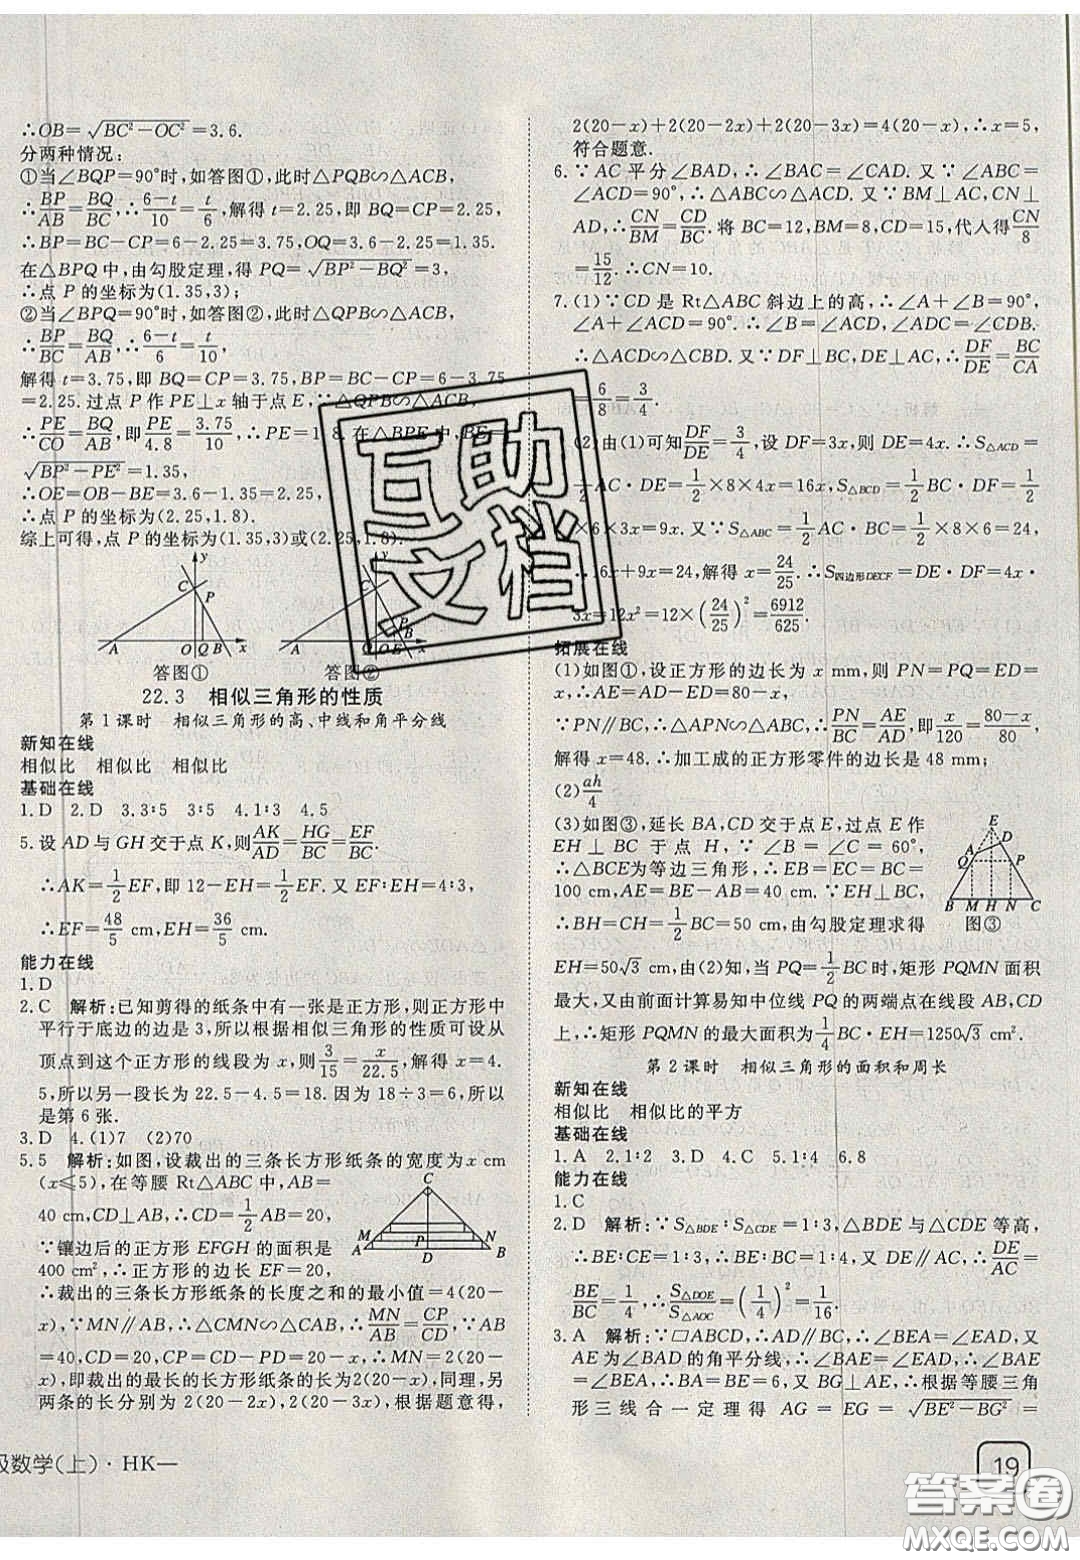 ∴OB=√(BC²-OC²)=3.6.
分两种情况:
①当∠BQP=90°时,如答图①,此时△PQB∽△ACB,
∴BP/AB=BQ/BC,∴(6-t)/10=t/6,解得 t=2.25,即 BQ=CP=2.25,
∴BP=BC-CP=6-2.25=3.75,OQ=3.6-2.25=1.35.
在△BPQ 中,由勾股定理,得 PQ=√(BP²-BQ²)=3,
∴点 P 的坐标为(1.35,3);
②当∠BPQ=90°时,如答图②,此时△QPB∽△ACB,
∴BP/BC=BQ/AB,∴(6-t)/6=t/10,
解得 t=3.75,即 BQ=CP=3.75,BP=BC-CP=6-3.75
=2.25.过点 P 作 PE⊥x 轴于点 E,∵△QPB∽△ACB,
∴PE/CO=BQ/AB,即PE/4.8=3.75/10,∴PE=1.8.在△BPE 中,BE=
√(BP²-PE²)=1.35,
∴OE=OB-BE=3.6-1.35=2.25,
∴点 P 的坐标为(2.25,1.8).
综上可得,点 P 的坐标为(1.35,3)或(2.25,1.8).
y C P A O Q B x
y C P A O E B x
答图① 答图②
22.3 相似三角形的性质
第1课时 相似三角形的高、中线和角平分线
新知在线
相似比 相似比 相似比
基础在线
1.D 2.D 3.3∶5 3∶5 4.1∶3 4.5
5.设 AD 与 GH 交于点 K,则AK/AD=HG/BC=EF/BC.
∴AK=1/2EF,即 12-EH=1/2EF.又∵EF∶EH=4∶3,
∴EF=48/5 cm,EH=36/5 cm.
能力在线
1.D
2.C 解析:已知剪得的纸条中有一张是正方形,则正方形中
平行于底边的边是 3,所以根据相似三角形的性质可设从
顶点到这个正方形的线段为 x,则3/15=x/22.5,解得 x=4.
5,所以另一段长为 22.5-4.5=18.因为 18÷3=6,所以
是第 6 张.
3.D 4.(1)7 (2)70
5.5 解析:如图,设裁出的三条长方形纸条的宽度为 x cm
(x≤5),在等腰 Rt△ABC 中,AB=
40 cm,CD⊥AB,∴CD=1/2AB=20,
∵镶边后的正方形 EFGH 的面积是
400 cm²,∴正方形的边长 EF=20,
C M P N A D B
∴裁出的三条长方形纸条的长度之和的最小值=4(20-
x),∵MN∥AB,∴△CMN∽△CAB,∴MN/AB=CP/CD,∵AB
=40,CD=20,CP=CD-PD=20-x,∴MN=2(20-
x),即裁出的最长的长方形纸条的长为2(20-x),同理,另
两条的长分别为 2(20-2x),2(20-3x),根据题意得,
2(20-x)+2(20-2x)+2(20-3x)=4(20-x),∴x=5,
符合题意.
6.∵AC 平分∠BAD,∴∠BAC=∠CAD.又∵∠ABC=
∠ACD=90°,∴△ABC∽△ACD.又∵BM⊥AC,CN⊥
AD,∴CN/BM=CD/BC.将 BC=12,BM=8,CD=15,代入得CN/8
=15/12.∴CN=10.
7.(1)∵CD 是 Rt△ABC 斜边上的高,∴∠A+∠B=90°,
∠A+∠ACD=90°.∴∠B=∠ACD,∠ADC=∠CDB.
∴△ACD∽△CBD.又∵DF⊥BC,DE⊥AC,∴DF/DE=BC/CA
=6/8=3/4.
(2)由(1)可知DF/DE=3/4,设 DF=3x,则 DE=4x.∴S△ACD=
1/2AC·DE=1/2×8×4x=16x,S△BCD=1/2BC·DF=1/2
×6×3x=9x.又∵S△ABC=1/2AC·BC=1/2×8×6=24,
∴16x+9x=24,解得 x=24/25.∴S四边形DECF=DE·DF=4x·
3x=12x²=12×(24/25)²=6912/625.
拓展在线
(1)如图①,设正方形的边长为 x mm,则 PN=PQ=ED=
x,∴AE=AD-ED=80-x,
∵PN∥BC,∴△APN∽△ABC,∴PN/BC=AE/AD,即x/120=(80-x)/80,
解得 x=48.∴加工成的正方形零件的边长是 48 mm;
(2)ah/4
(3)如图③,延长 BA,CD 交于点 E,过点 E 作
EH⊥BC 于点 H,∵∠B=∠C=60°,
∴△BCE为等边三角形,∴BE=BC=
100 cm,AE=BE-AB=40 cm.∵EH⊥BC,
∴BH=CH=1/2BC=50 cm,由勾股定理求得
E A D Q P B M H N C
图③
EH=50√3 cm,由(2)可知,当 PQ=1/2BC时,矩形 PQMN 面积
最大,又由前面计算易知中位线 PQ 的两端点在线段 AB,CD
上,∴矩形 PQMN 的最大面积为1/4BC·EH=1250√3 cm².
第2课时 相似三角形的面积和周长
新知在线
相似比 相似比的平方
基础在线
1.A 2.1∶2 3.D 4.C 5.1∶4 6.8
能力在线
1.C
2.D 解析:∵S△BDE∶S△CDE=1∶3,△BDE 与△CDE 等高,
∴BE∶CE=1∶3,∴BE∶BC=1∶4,又 DE∥AC,∴DE/AC=
BE/BC=1/4,∴S△DOE/S△AOC=(1/4)²=1/16.
3.A 解析:∵□ABCD,∴AD∥BC,∴∠BEA=∠EAD,又
AE为∠BAD的角平分线,∴∠BAE=∠EAD,∴∠BAE
=∠BEA,∴BA=BE=6,又 BG⊥AE,∴根据等腰三角
形三线合一定理得 AG=EG=√(BE²-BG²)=
级数学(上)·HK—
19
互助
文档
答案圈
MXQE.COM